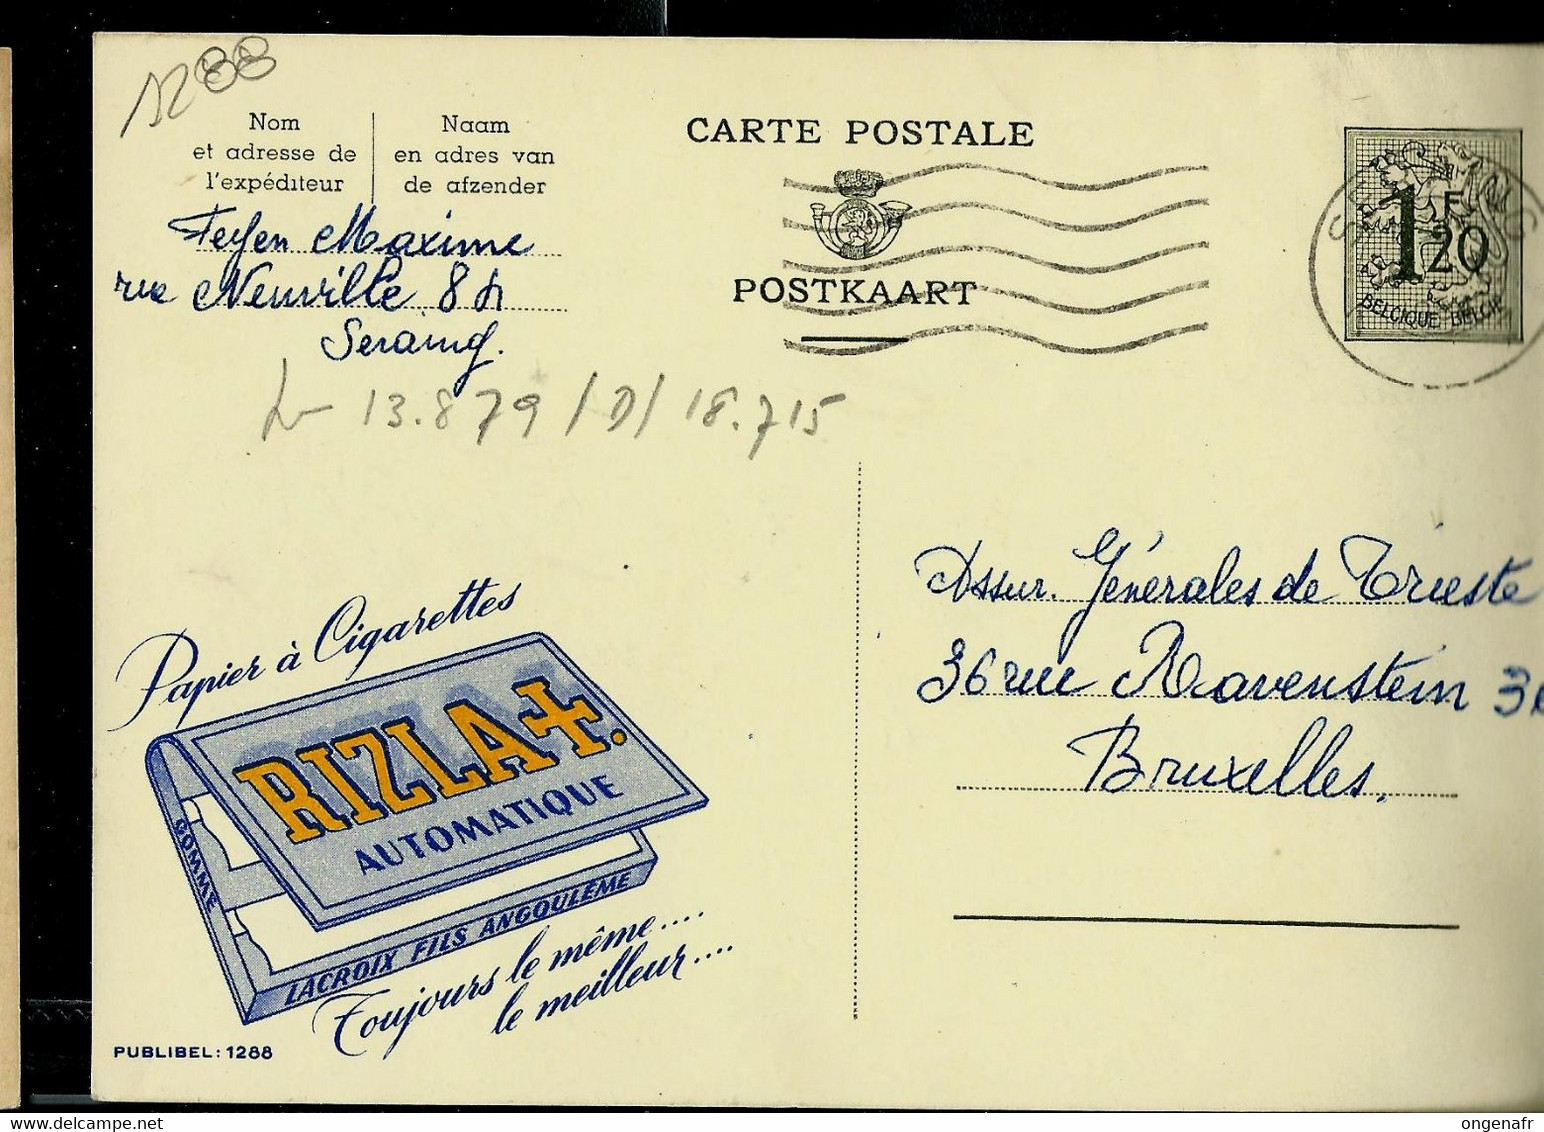 1288
Nom
et adresse de
l'expéditeur
Naam
en adres van
de afzender
CARTE POSTALE
POSTKAART
1F20
BELGIQUE BELGIE
Feyen Maxime
rue Neuville 84
Seraing.
13.879 /D/ 18.715
Assur. Générales de Trieste
36 rue Ravenstein 36
Bruxelles.
Papier à Cigarettes
RIZLA+.
AUTOMATIQUE
GOMMÉ
LACROIX FILS ANGOULÊME
Toujours le même....
le meilleur....
PUBLIBEL: 1288
delcampe.net
ongenafr